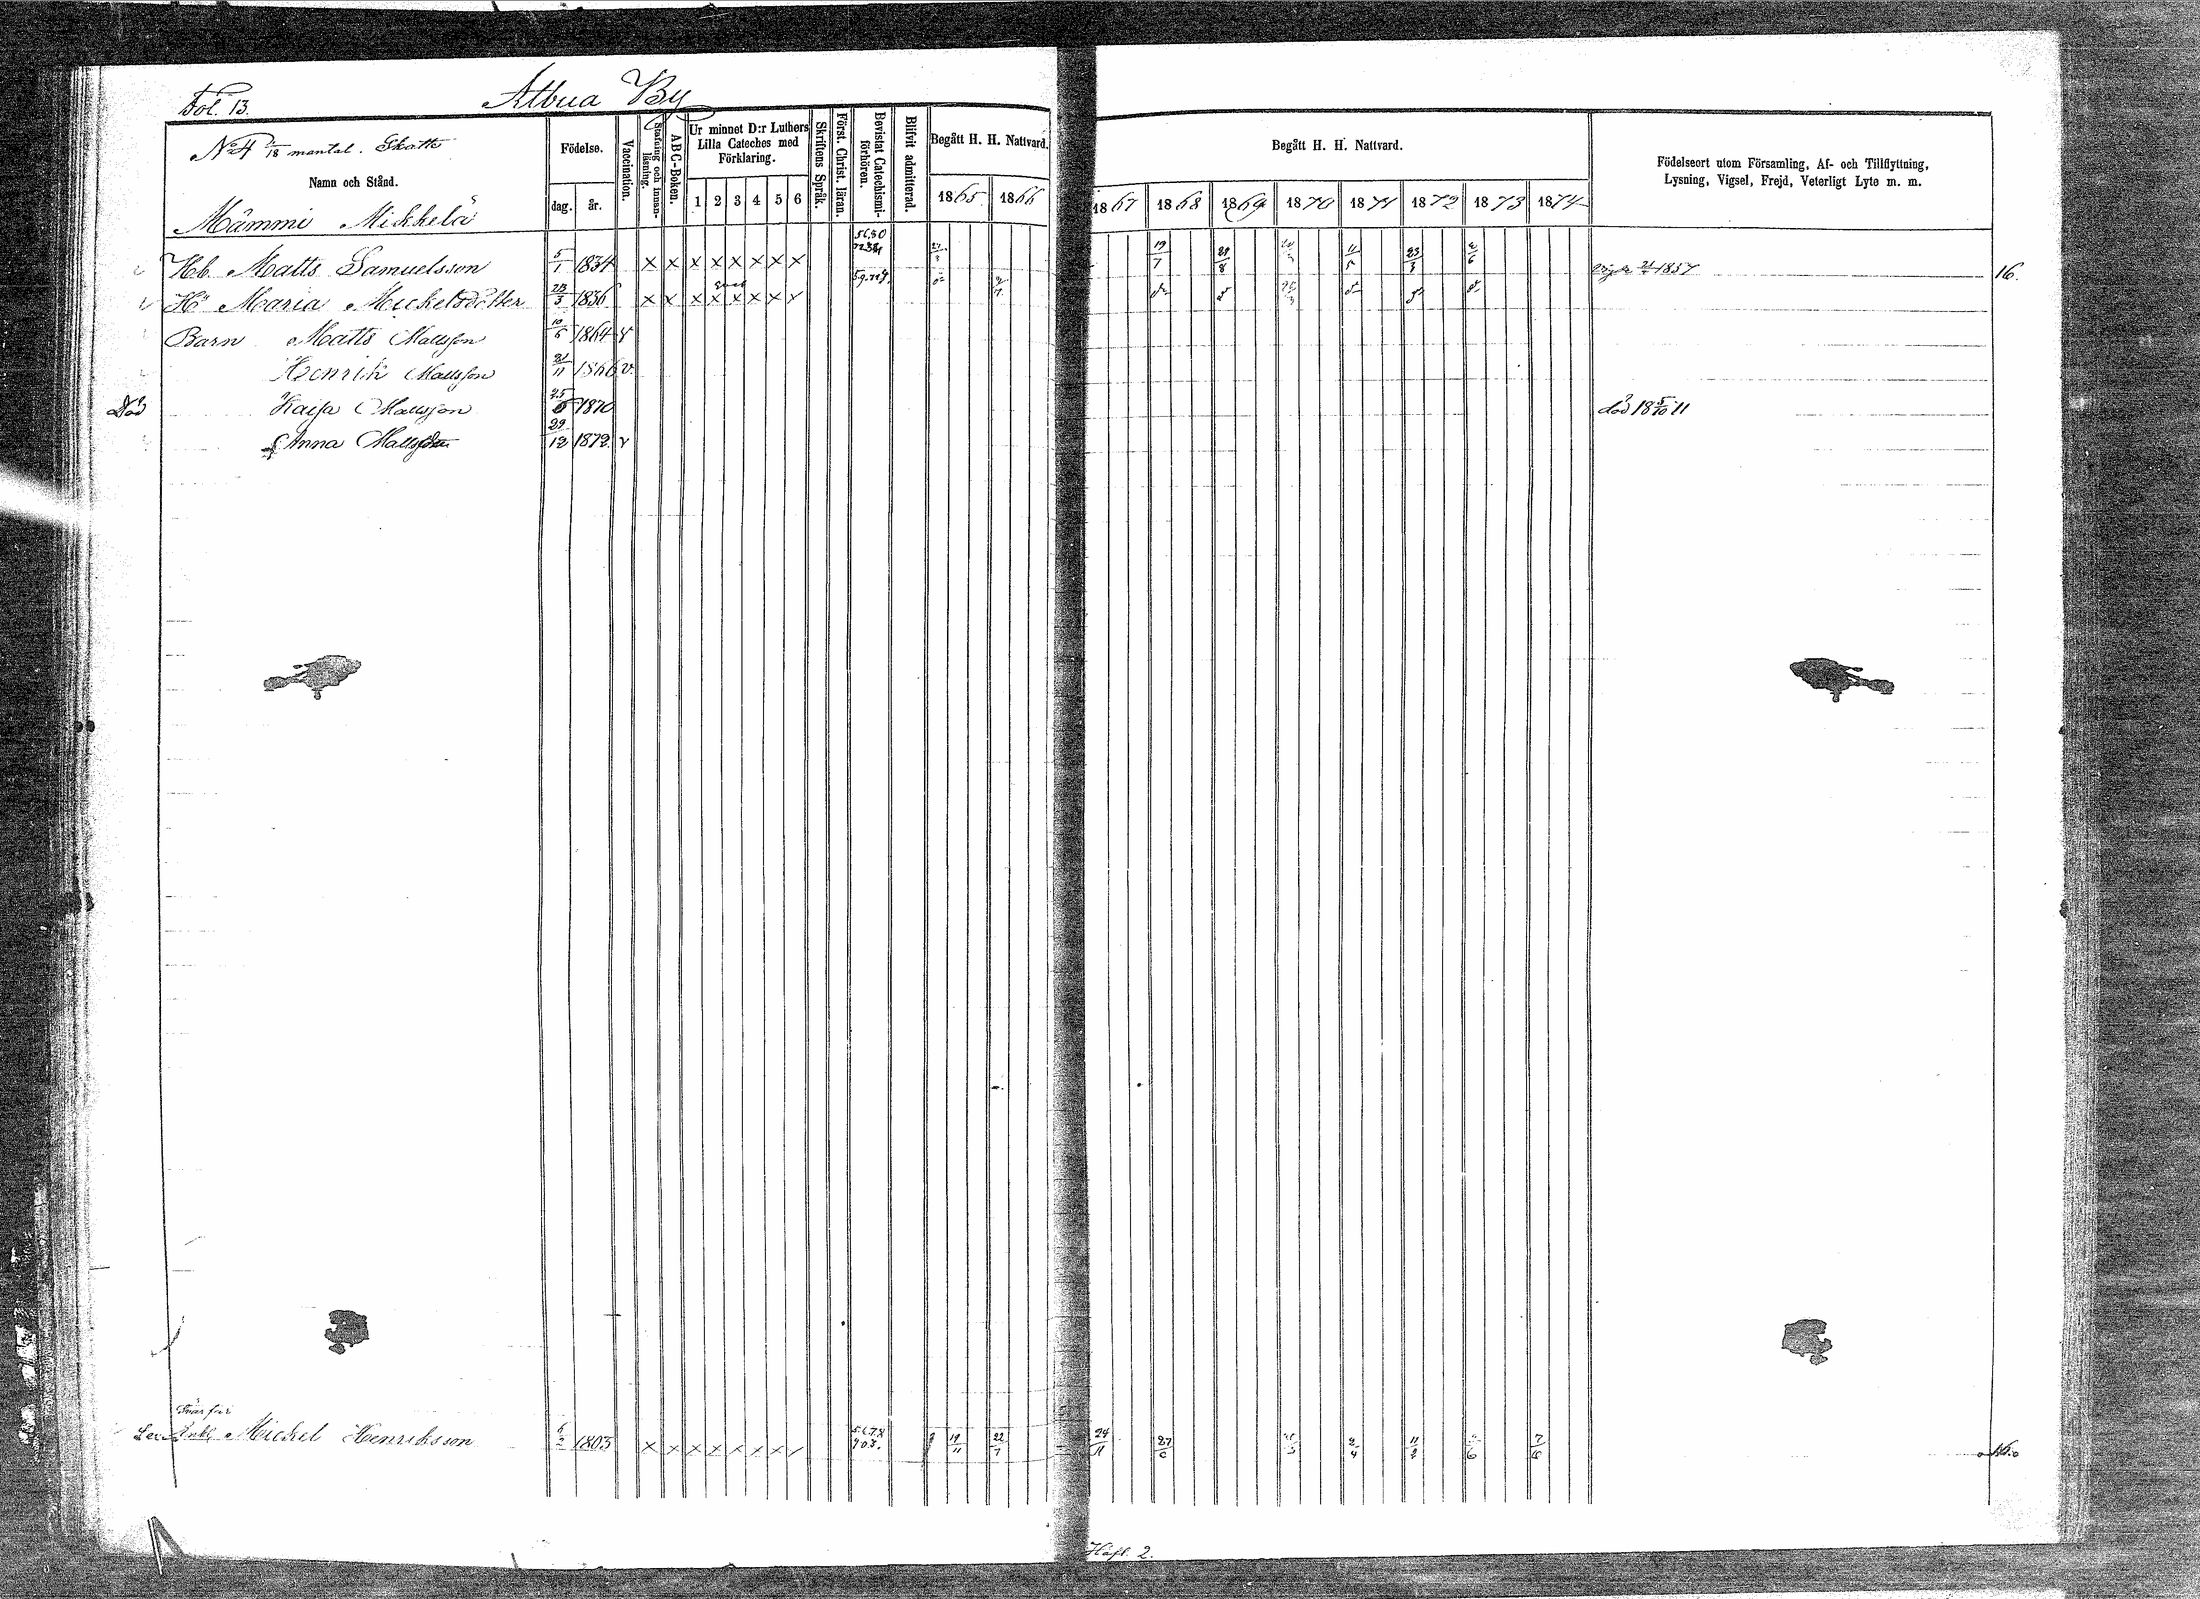 Fol. 13.
Albua By
No 4 /18 mantal. Skatte
Namn och Stånd.
Mämmi Mikkelä
Födelse.
dag. år.
Vaccination.
Stafning och innan-läsning.
ABC-Boken.
Ur minnet D:r Luthers Lilla Cateches med Förklaring.
1 2 3 4 5 6
Skriftens Språk.
Först. Christ. läran.
Bevistat Catechismi-förhören.
Blifvit admitterad.
Begått H. H. Nattvard.
1865 1866
Begått H. H. Nattvard.
1867 1868 1869 1870 1871 1872 1873 1874
Födelseort utom Församling, Af- och Tillflyttning,
Lysning, Vigsel, Frejd, Veterligt Lyte m. m.
Hb. Matts Samuelsson 5/1 1834 x x x x x x x x 19/7 29/8 11/5 23/3 2/6 1857 16.
Hu Maria Mickelsdotter 23/3 1836 x x x x x x x x
Barn Matts Mattsson 10/5 1864 v
Henrik Mattsson 21/11 1866 v.
Död Kajsa Mattsson 25/6 1870 död 18 5/10 71
Anna Mattsson 29/12 1872 v
Svärfar
Mickel Henriksson 1803 x x x x x x x x 19/11 22/7 24/11 27/6 2/4 11/2 7/6 16.
Häft. 2.